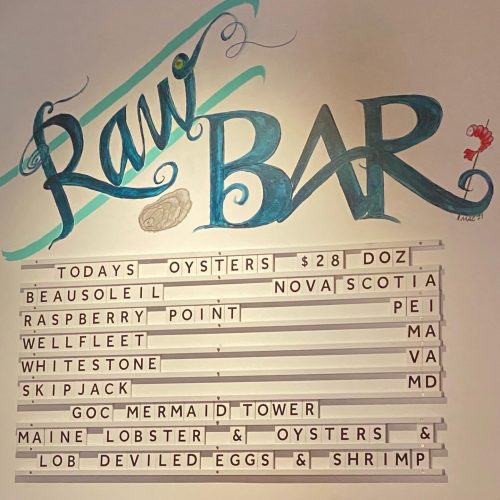 Raw
BAR
TODAYS OYSTERS $28 DOZ
BEAUSOLEIL NOVA SCOTIA
RASPBERRY POINT PEI
WELLFLEET MA
WHITESTONE VA
SKIPJACK MD
GOC MERMAID TOWER
MAINE LOBSTER & OYSTERS &
LOB DEVILED EGGS & SHRIMP